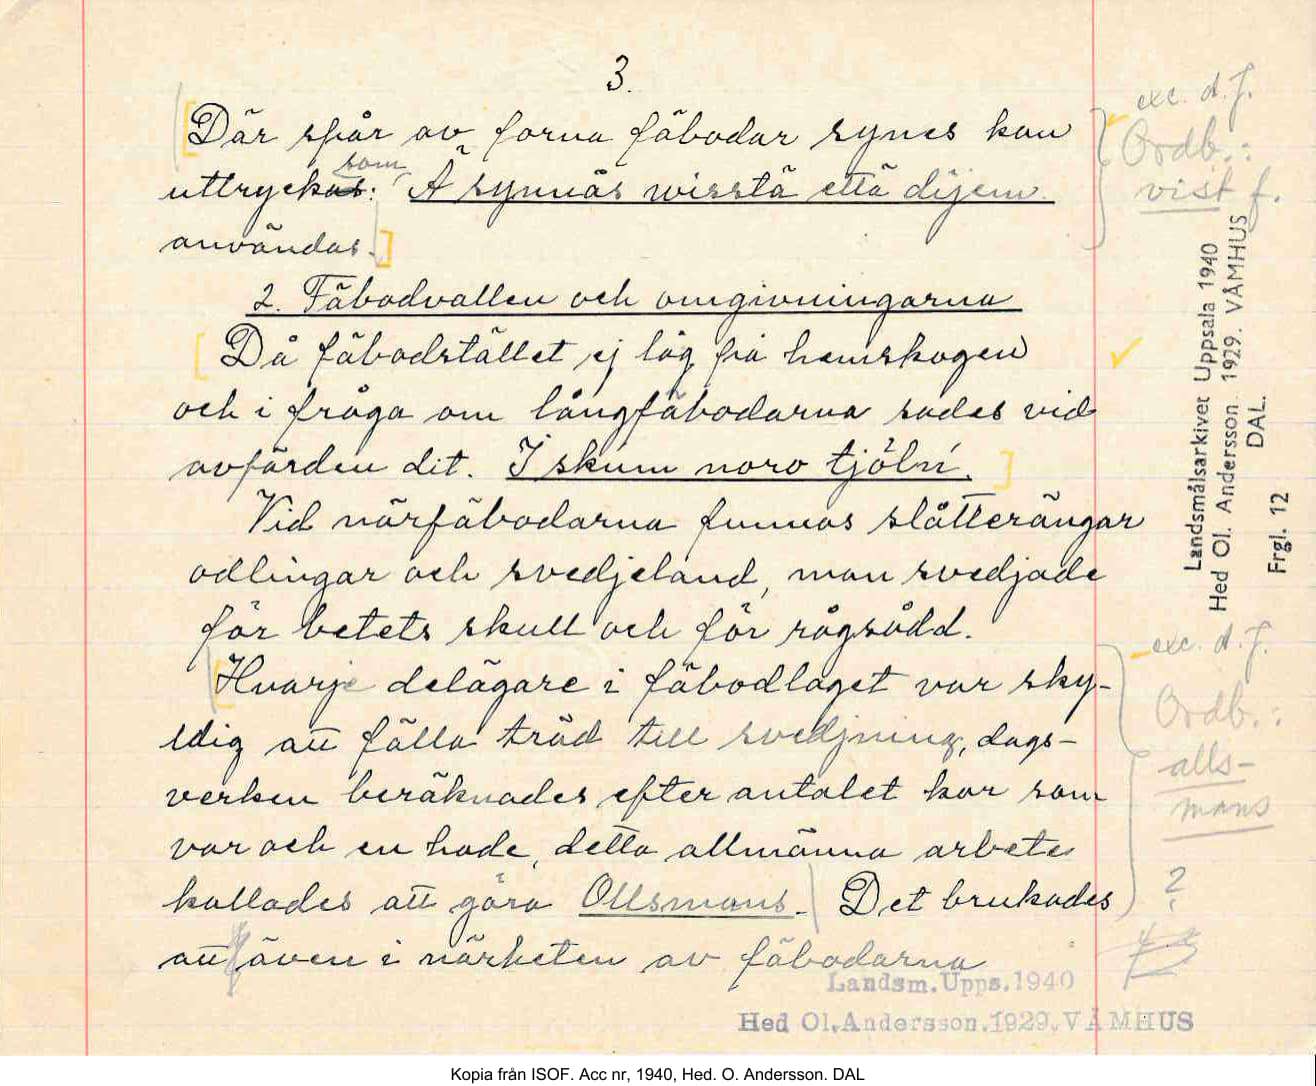 3.
Där spår av forna fäbodar synes kan
som
uttryckas: Ä synnäs wisstä että dijem.
användas.
2. Fäbodvallen och omgivningarna
Då fäbodstället ej låg på hemskogen
och i fråga om långfäbodarna sades vid
avfärden dit. I skum noro tjöln.
Vid närfäbodarna funnos slåtterängar
odlingar och svedjeland, man svedjade
för betets skull och för rågsådd.
Hvarje delägare i fäbodlaget var sky-
ldig att fälla träd till svedjning, dags-
verken beräknades efter antalet kor som
var och en hade, detta allmänna arbete
kallades att göra Ollsmans. Det brukades
att även i närheten av fäbodarna
exc. d. f.
Ordb.:
vist f.
Landsmålsarkivet Uppsala 1940
Hed Ol. Andersson 1929. VÅMHUS
DAL.
Frgl. 12
exc. d. f.
Ordb.:
alls-
mans
?
Landsm.Upps.1940
Hed Ol.Andersson.1929.VÅMHUS
Kopia från ISOF. Acc nr, 1940, Hed. O. Andersson. DAL